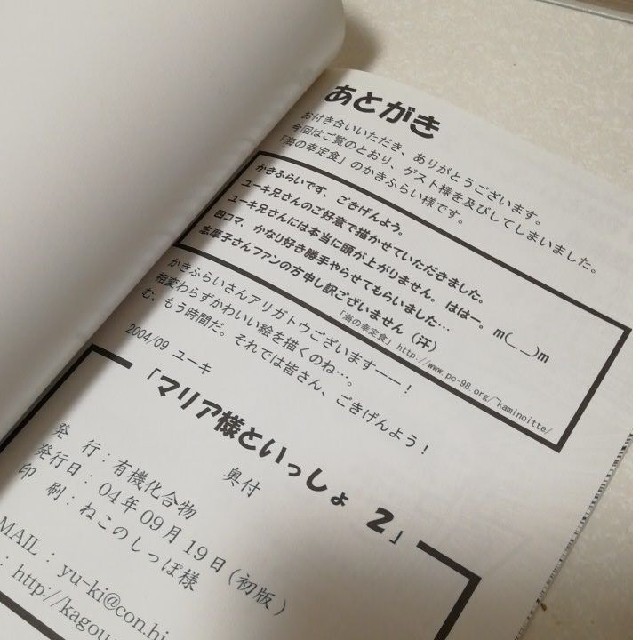 あとがき
お付き合いいただき、ありがとうございます。
今回はご覧のとおり、ゲスト様を及びしてしまいました。
「海の幸定食」のかきふらい様です。
かきふらいです、ごきげんよう。
ユーキ兄さんのご好意で描かせていただきました。
ユーキ兄さんには本当に頭が上がりません、ははー。m(_ _)m
四コマ、かなり好き勝手やらせてもらいました…
志摩子さんファンの方申し訳ございません(汗)
「海の幸定食」http://www.po-98.org/~kaminoitte/
かきふらいさんアリガトウございますーー！
相変わらずかわいい絵を描くのね…。
む、もう時間だ。それでは皆さん、ごきげんよう！
2004/09 ユーキ
「マリア様といっしょ 2」
奥付
発 行：有機化合物
発行日：04年09月19日(初版)
印 刷：ねこのしっぽ様
MAIL：yu-ki@con.hi
：http://kagou